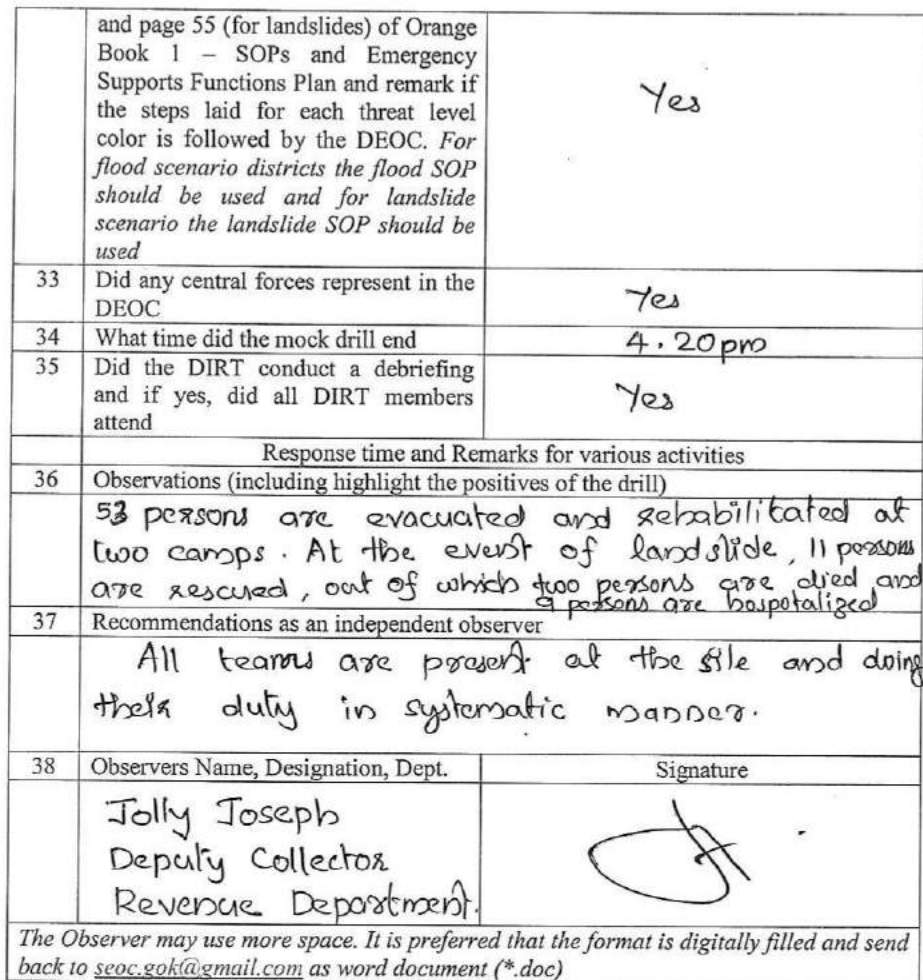 and page 55 (for landslides) of Orange
Book 1 – SOPs and Emergency
Supports Functions Plan and remark if
the steps laid for each threat level
color is followed by the DEOC. For
flood scenario districts the flood SOP
should be used and for landslide
scenario the landslide SOP should be
used
Yes
33 Did any central forces represent in the
DEOC
Yes
34 What time did the mock drill end 4.20pm
35 Did the DIRT conduct a debriefing
and if yes, did all DIRT members
attend
Yes
Response time and Remarks for various activities
36 Observations (including highlight the positives of the drill)
53 persons are evacuated and rehabilitated at
two camps. At the event of landslide, 11 persons
are rescued, out of which two persons are died and
9 persons are hospotalized
37 Recommendations as an independent observer
All teams are present at the site and doing
their duty in systematic manner.
38 Observers Name, Designation, Dept. Signature
Jolly Joseph
Deputy Collector
Revenue Department.
The Observer may use more space. It is preferred that the format is digitally filled and send
back to seoc.gok@gmail.com as word document (*.doc)